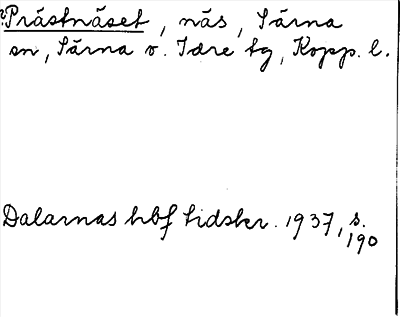 Prästnäset, näs, Särna
sn, Särna o. Idre tg, Kopp. l.
Dalarnas hbf tidskr. 1937, s.
190